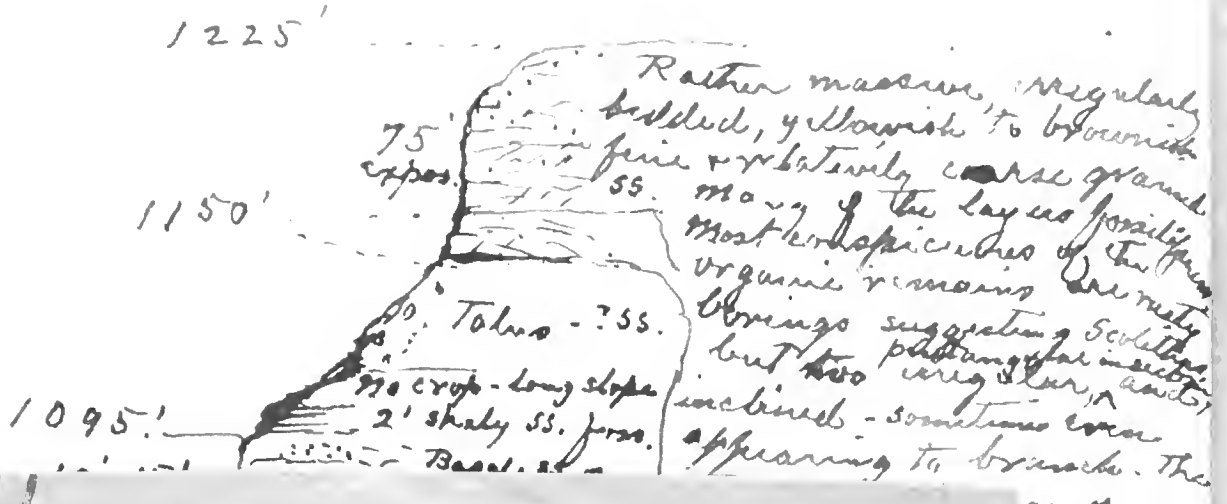 1225'
75'
expos.
1150'
1095'
Talus - ? ss.
No crop - long slope
2' shaly ss. foss.
Basal ss
Rather massive, irregularly
bedded, yellowish to brownish
fine & relatively coarse grained
ss. Many of the layers fossiliferous
Most conspicuous of the
organic remains are rusty
borings suggesting Scolithus,
but too irregular, and
inclined - sometimes even
appearing to branch. The